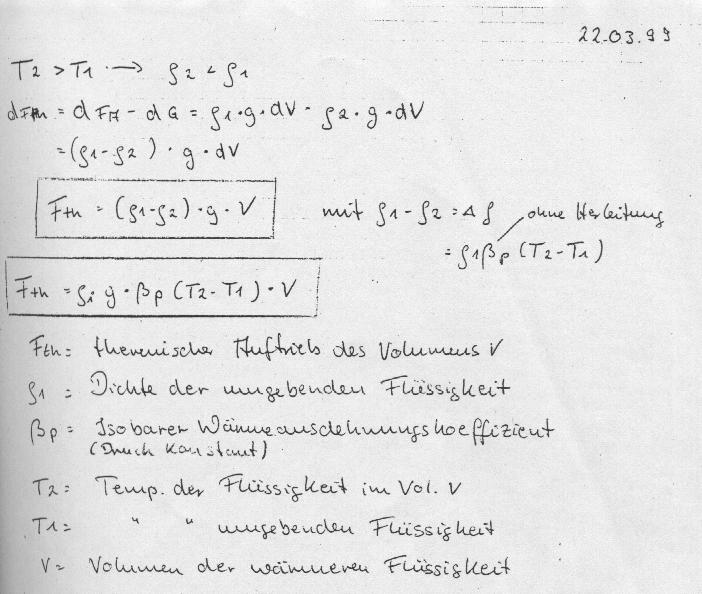 22.03.99
T2 > T1 → ρ2 < ρ1
dFth = dFA - dG = ρ1·g·dV - ρ2·g·dV
= (ρ1-ρ2)·g·dV
Fth = (ρ1-ρ2)·g·V mit ρ1-ρ2 = Δρ ohne Herleitung
= ρ1βp (T2-T1)
Fth = ρ1 g·βp (T2-T1)·V
Fth = thermischer Auftrieb des Volumens V
ρ1 = Dichte der umgebenden Flüssigkeit
βp = Isobarer Wärmeausdehnungskoeffizient
(Druck konstant)
T2 = Temp. der Flüssigkeit im Vol. V
T1 = " " umgebenden Flüssigkeit
V = Volumen der wärmeren Flüssigkeit